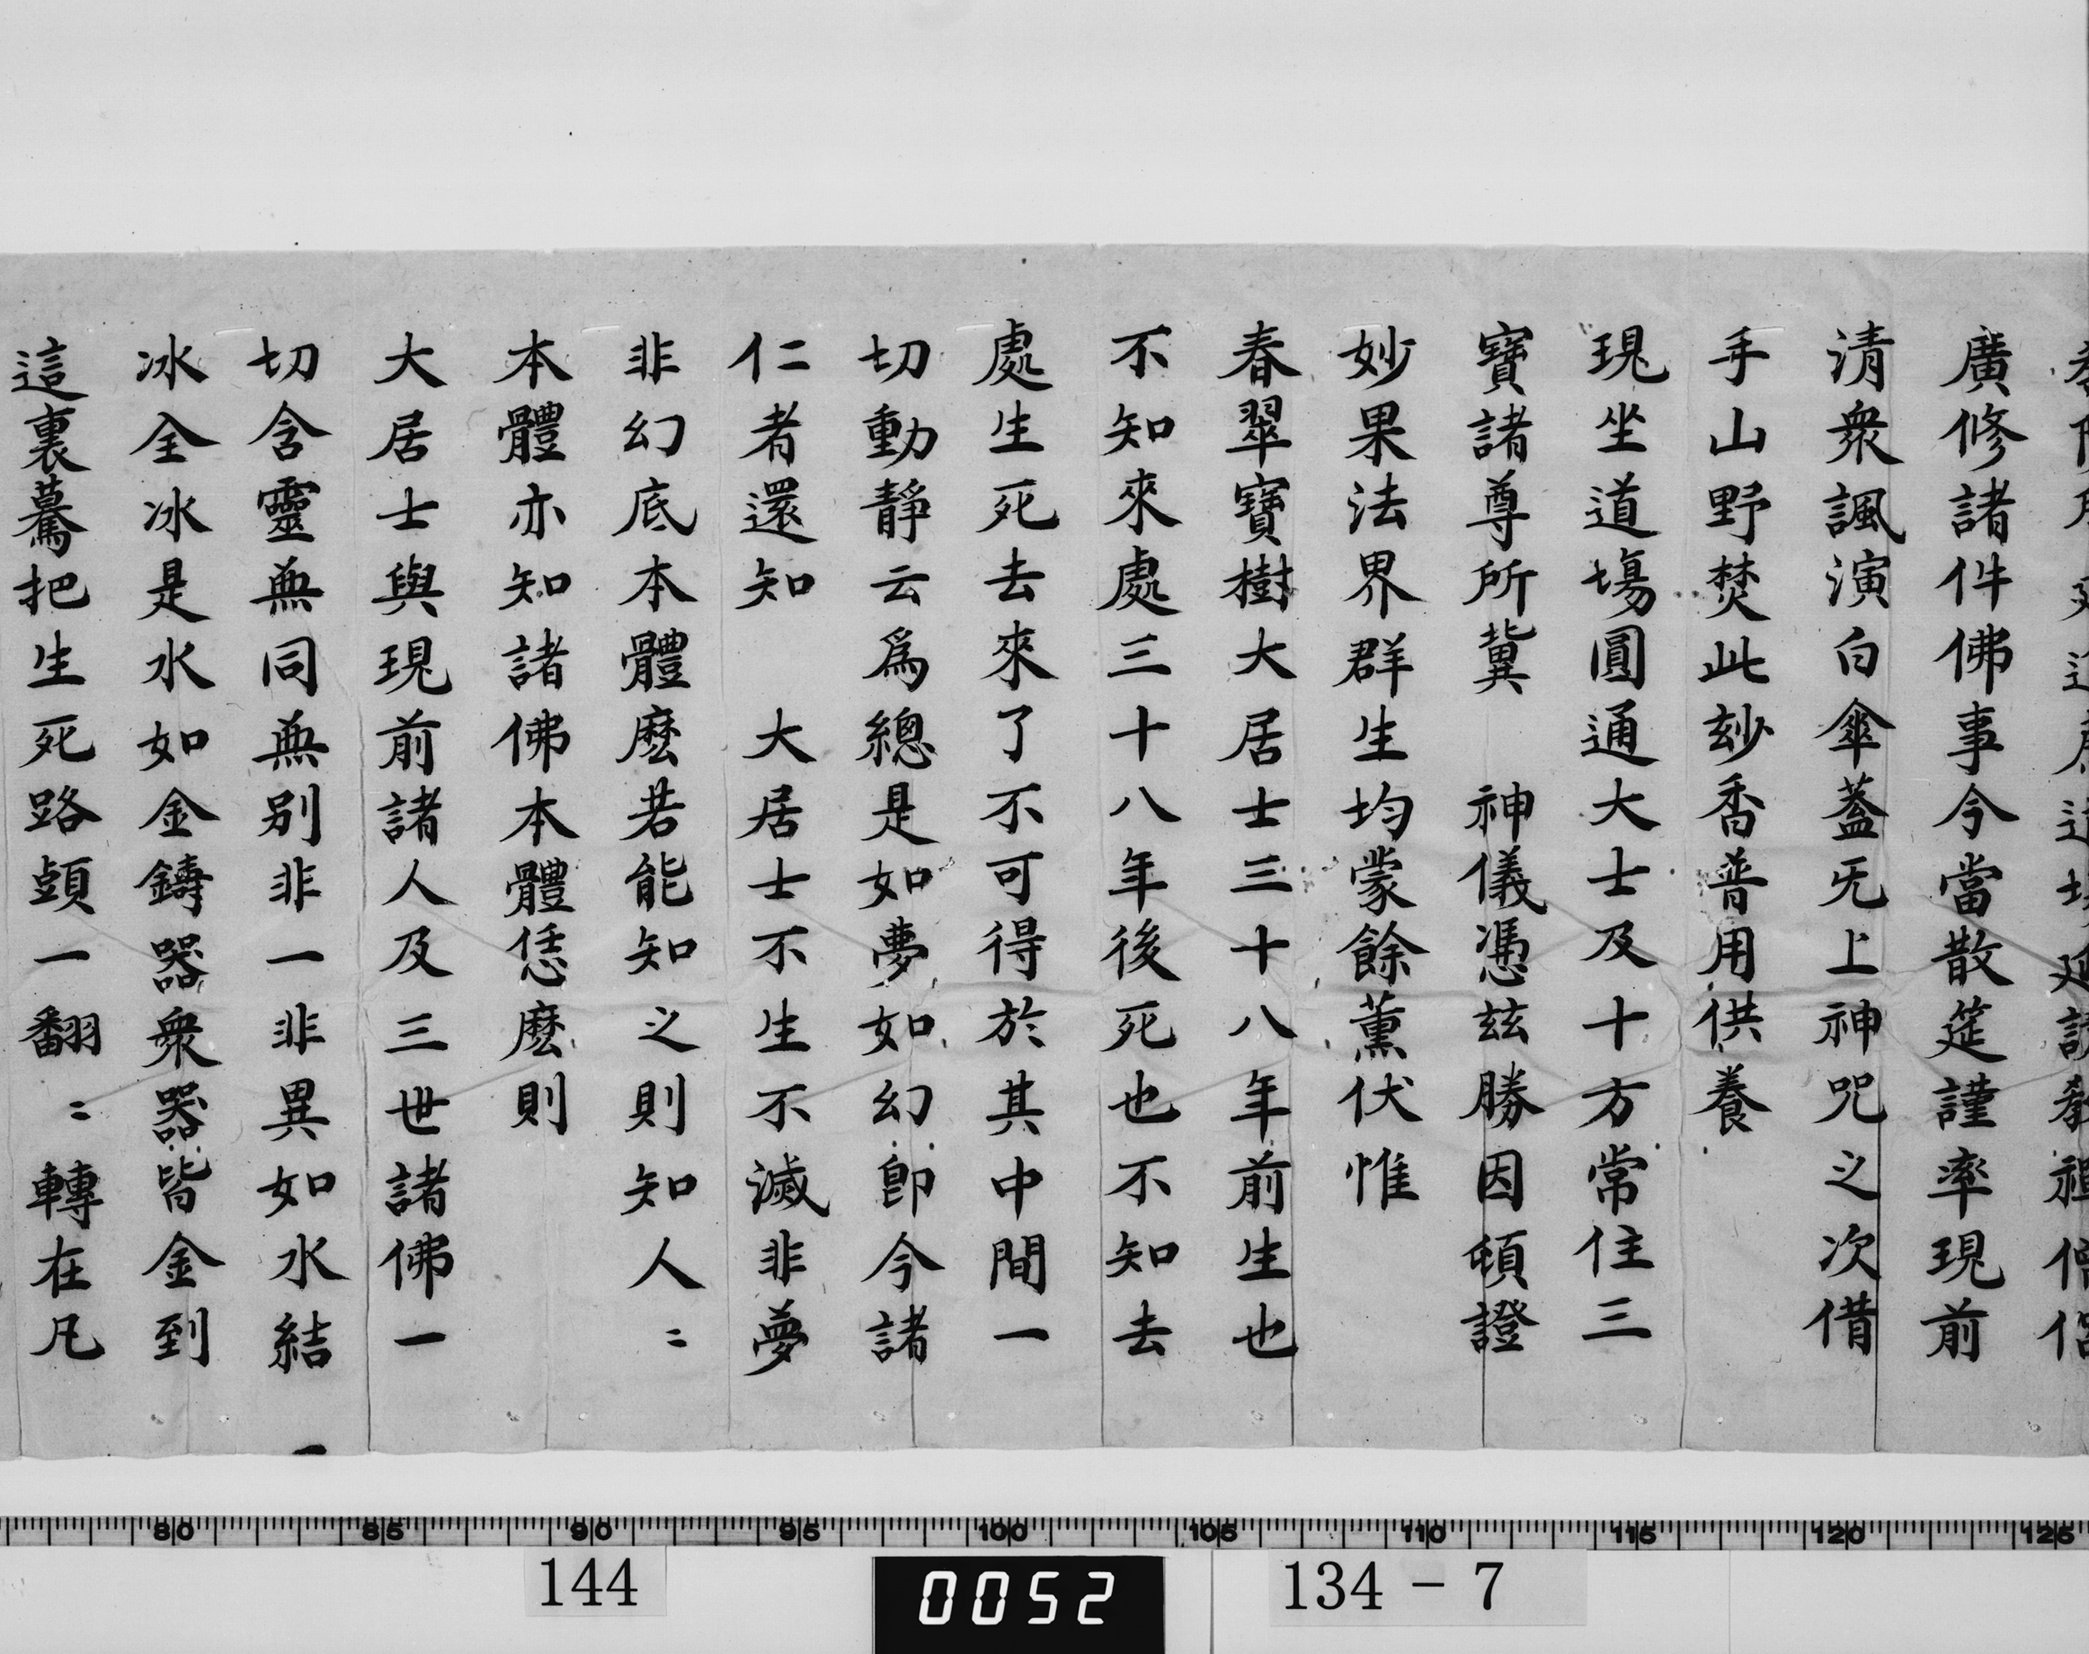 廣修諸件佛事今當散筵謹率現前
清衆諷演白傘蓋旡上神咒之次借
手山野焚此玅香普用供養
現坐道場圓通大士及十方常住三
寶諸尊所冀 神儀憑兹勝因頓證
妙果法界群生均蒙餘薰伏惟
春翠寶樹大居士三十八年前生也
不知來處三十八年後死也不知去
處生死去來了不可得於其中間一
切動靜云爲總是如夢如幻卽今諸
仁者還知 大居士不生不滅非夢
非幻底本體麽若能知之則知人〻
本體亦知諸佛本體恁麽則
大居士與現前諸人及三世諸佛一
切含靈無同無別非一非異如水結
冰全冰是水如金鑄器衆器皆金到
這裏驀把生死路頭一翻〻轉在凡
80 85 90 95 100 105 110 115 120 125
144 0052 134-7